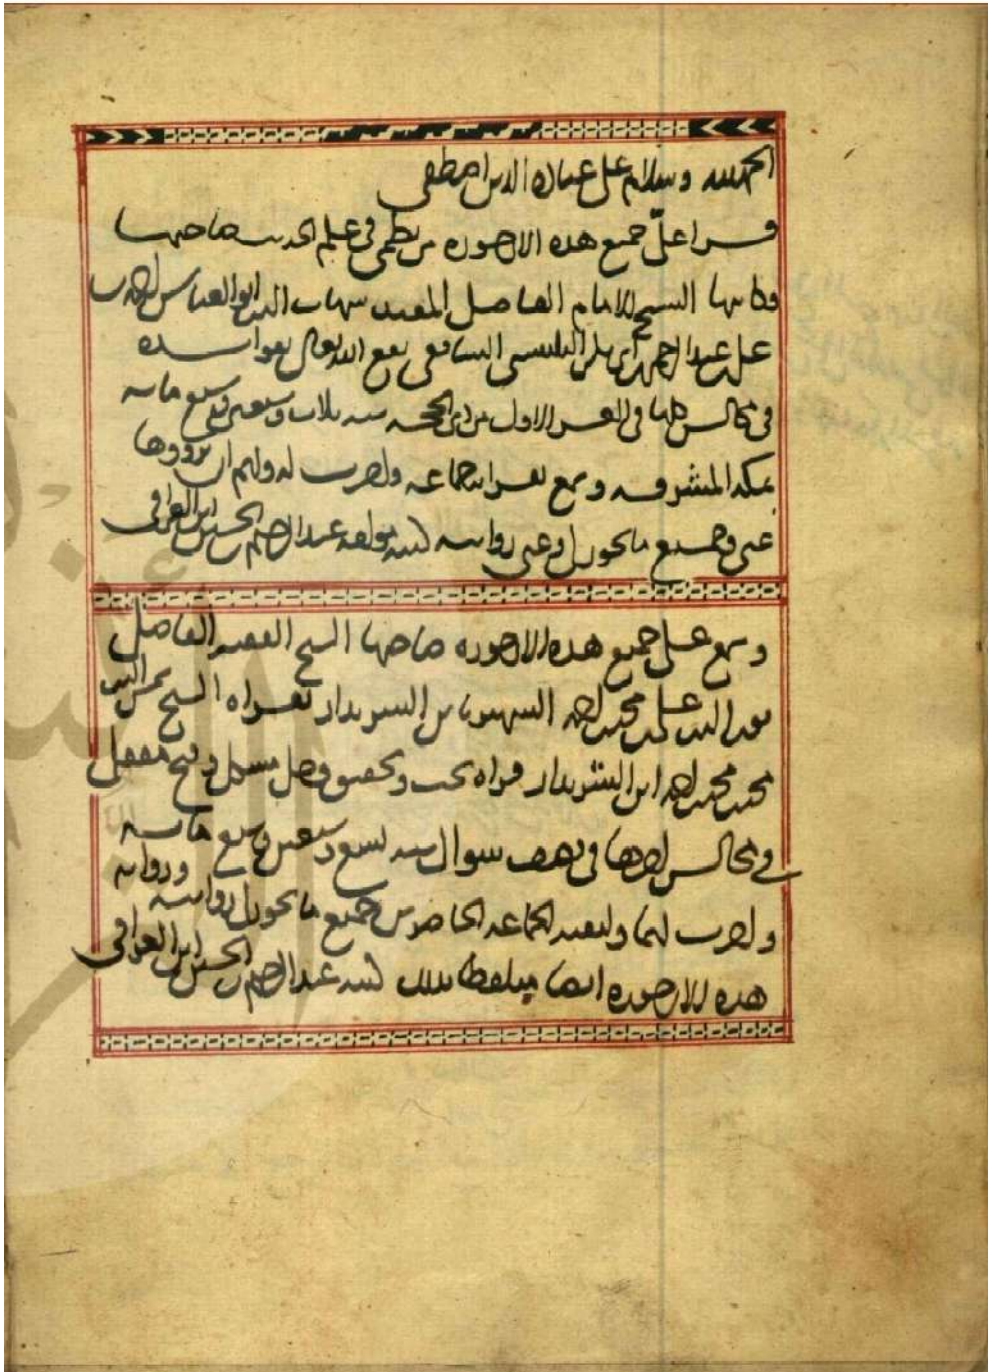 الحمد لله وسلام على عباده الذين اصطفى
قرا علىّ جميع هذه الارجوزة من نظمي في علم الحديث صاحبها
وكاتبها الشيخ الامام الفاضل المفيد شهاب الدين ابو العباس احمد بن
علي بن عبد الرحمن البلبيسي الشافعي نفع الله تعالى بفوائده
في مجالس في العشر الاول من ذي الحجة سنة ثلاث وسبعين وسبع مائة
بمكة المشرفة وسمع بقراته جماعة واجزت له ولهم ان يرووها
عني وجميع ما يجوز لي وعني روايته كتبه مولفه عبد الرحيم بن الحسين ابن العراقي
وسمع علي جميع هذه الارجوزة صاحبها الشيخ الفقيه الفاضل
نور الدين علي بن محمد بن احمد بقراة الشيخ شمس الدين
محمد بن محمد بن احمد ابن قراة بحث وتحقيق وحل مشكل وفتح مقفل
في مجالس اخرها في نصف شوال سنة تسع وسبعين وسبع مائة
واجزت لهما ولبقية الجماعة الحاضرين جميع ما يجوز لي روايته ورواية
هذه الارجوزة ايضا متلفظا بذلك كتبه عبد الرحيم بن الحسين ابن العراقي